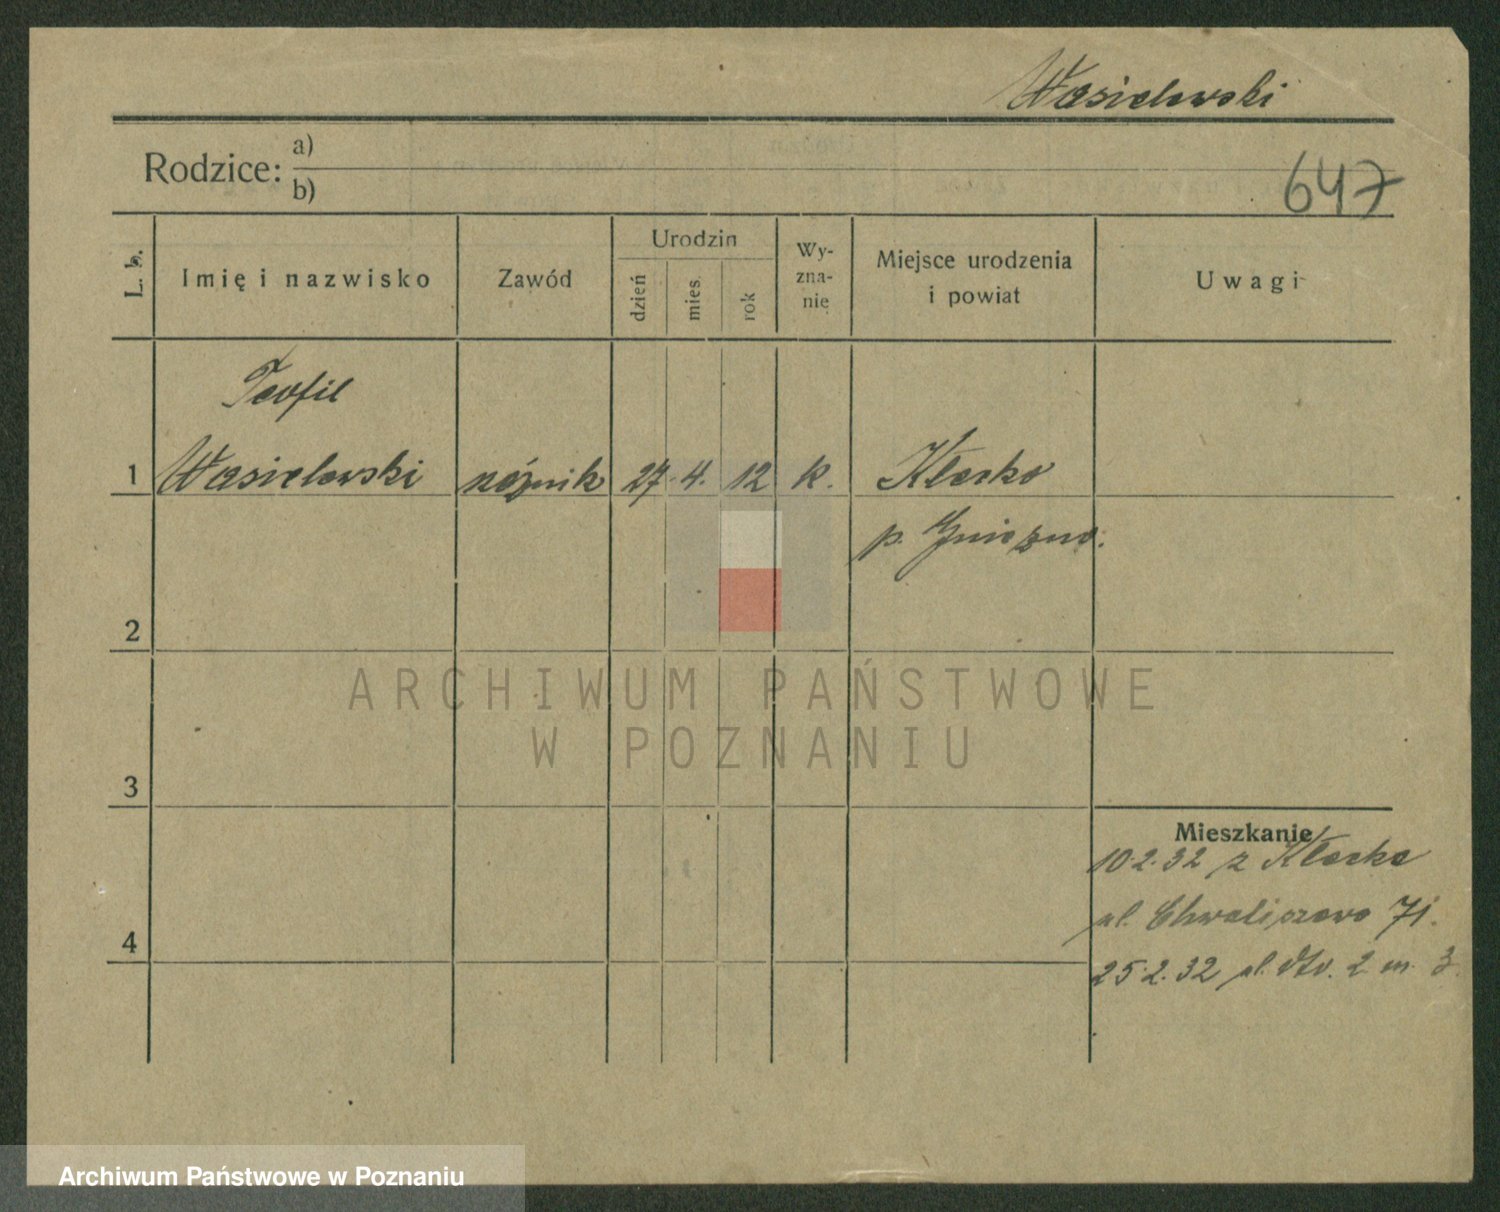 Wasielewski
Rodzice:
a)
b)
647
L. b.
Imię i nazwisko
Zawód
Urodzin
dzień
mies.
rok
Wy-
zna-
nie
Miejsce urodzenia
i powiat
Uwagi
Teofil
1 Wasielewski rzeźnik 27. 4. 12 k. Kłecko
p. Gniezno.
2
ARCHIWUM PAŃSTWOWE
W POZNANIU
3
Mieszkanie
10.2.32 z Kłecka
ul. Chwaliszewo 71.
4
25.2.32 ul. dto. 2 m. 3.
Archiwum Państwowe w Poznaniu